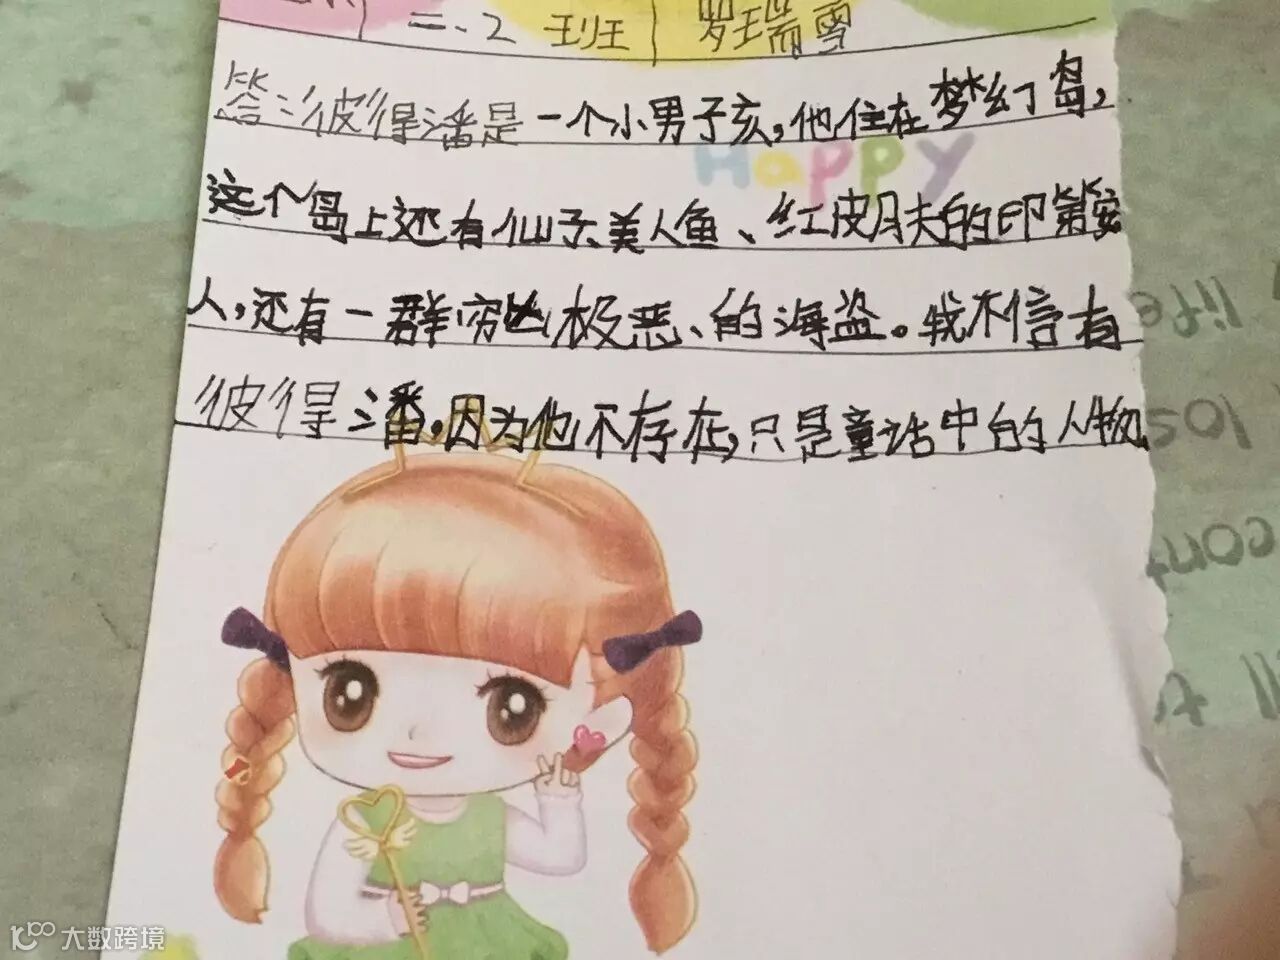 二、2 班 罗瑞雪
答：彼得潘是一个小男孩，他住在梦幻岛，
Happy
这个岛上还有仙子、美人鱼、红皮肤的印第安
人，还有一群穷凶极恶、的海盗。我不信有
彼得潘。因为他不存在，只是童话中的人物。
life
los
cont
ll
大数跨境